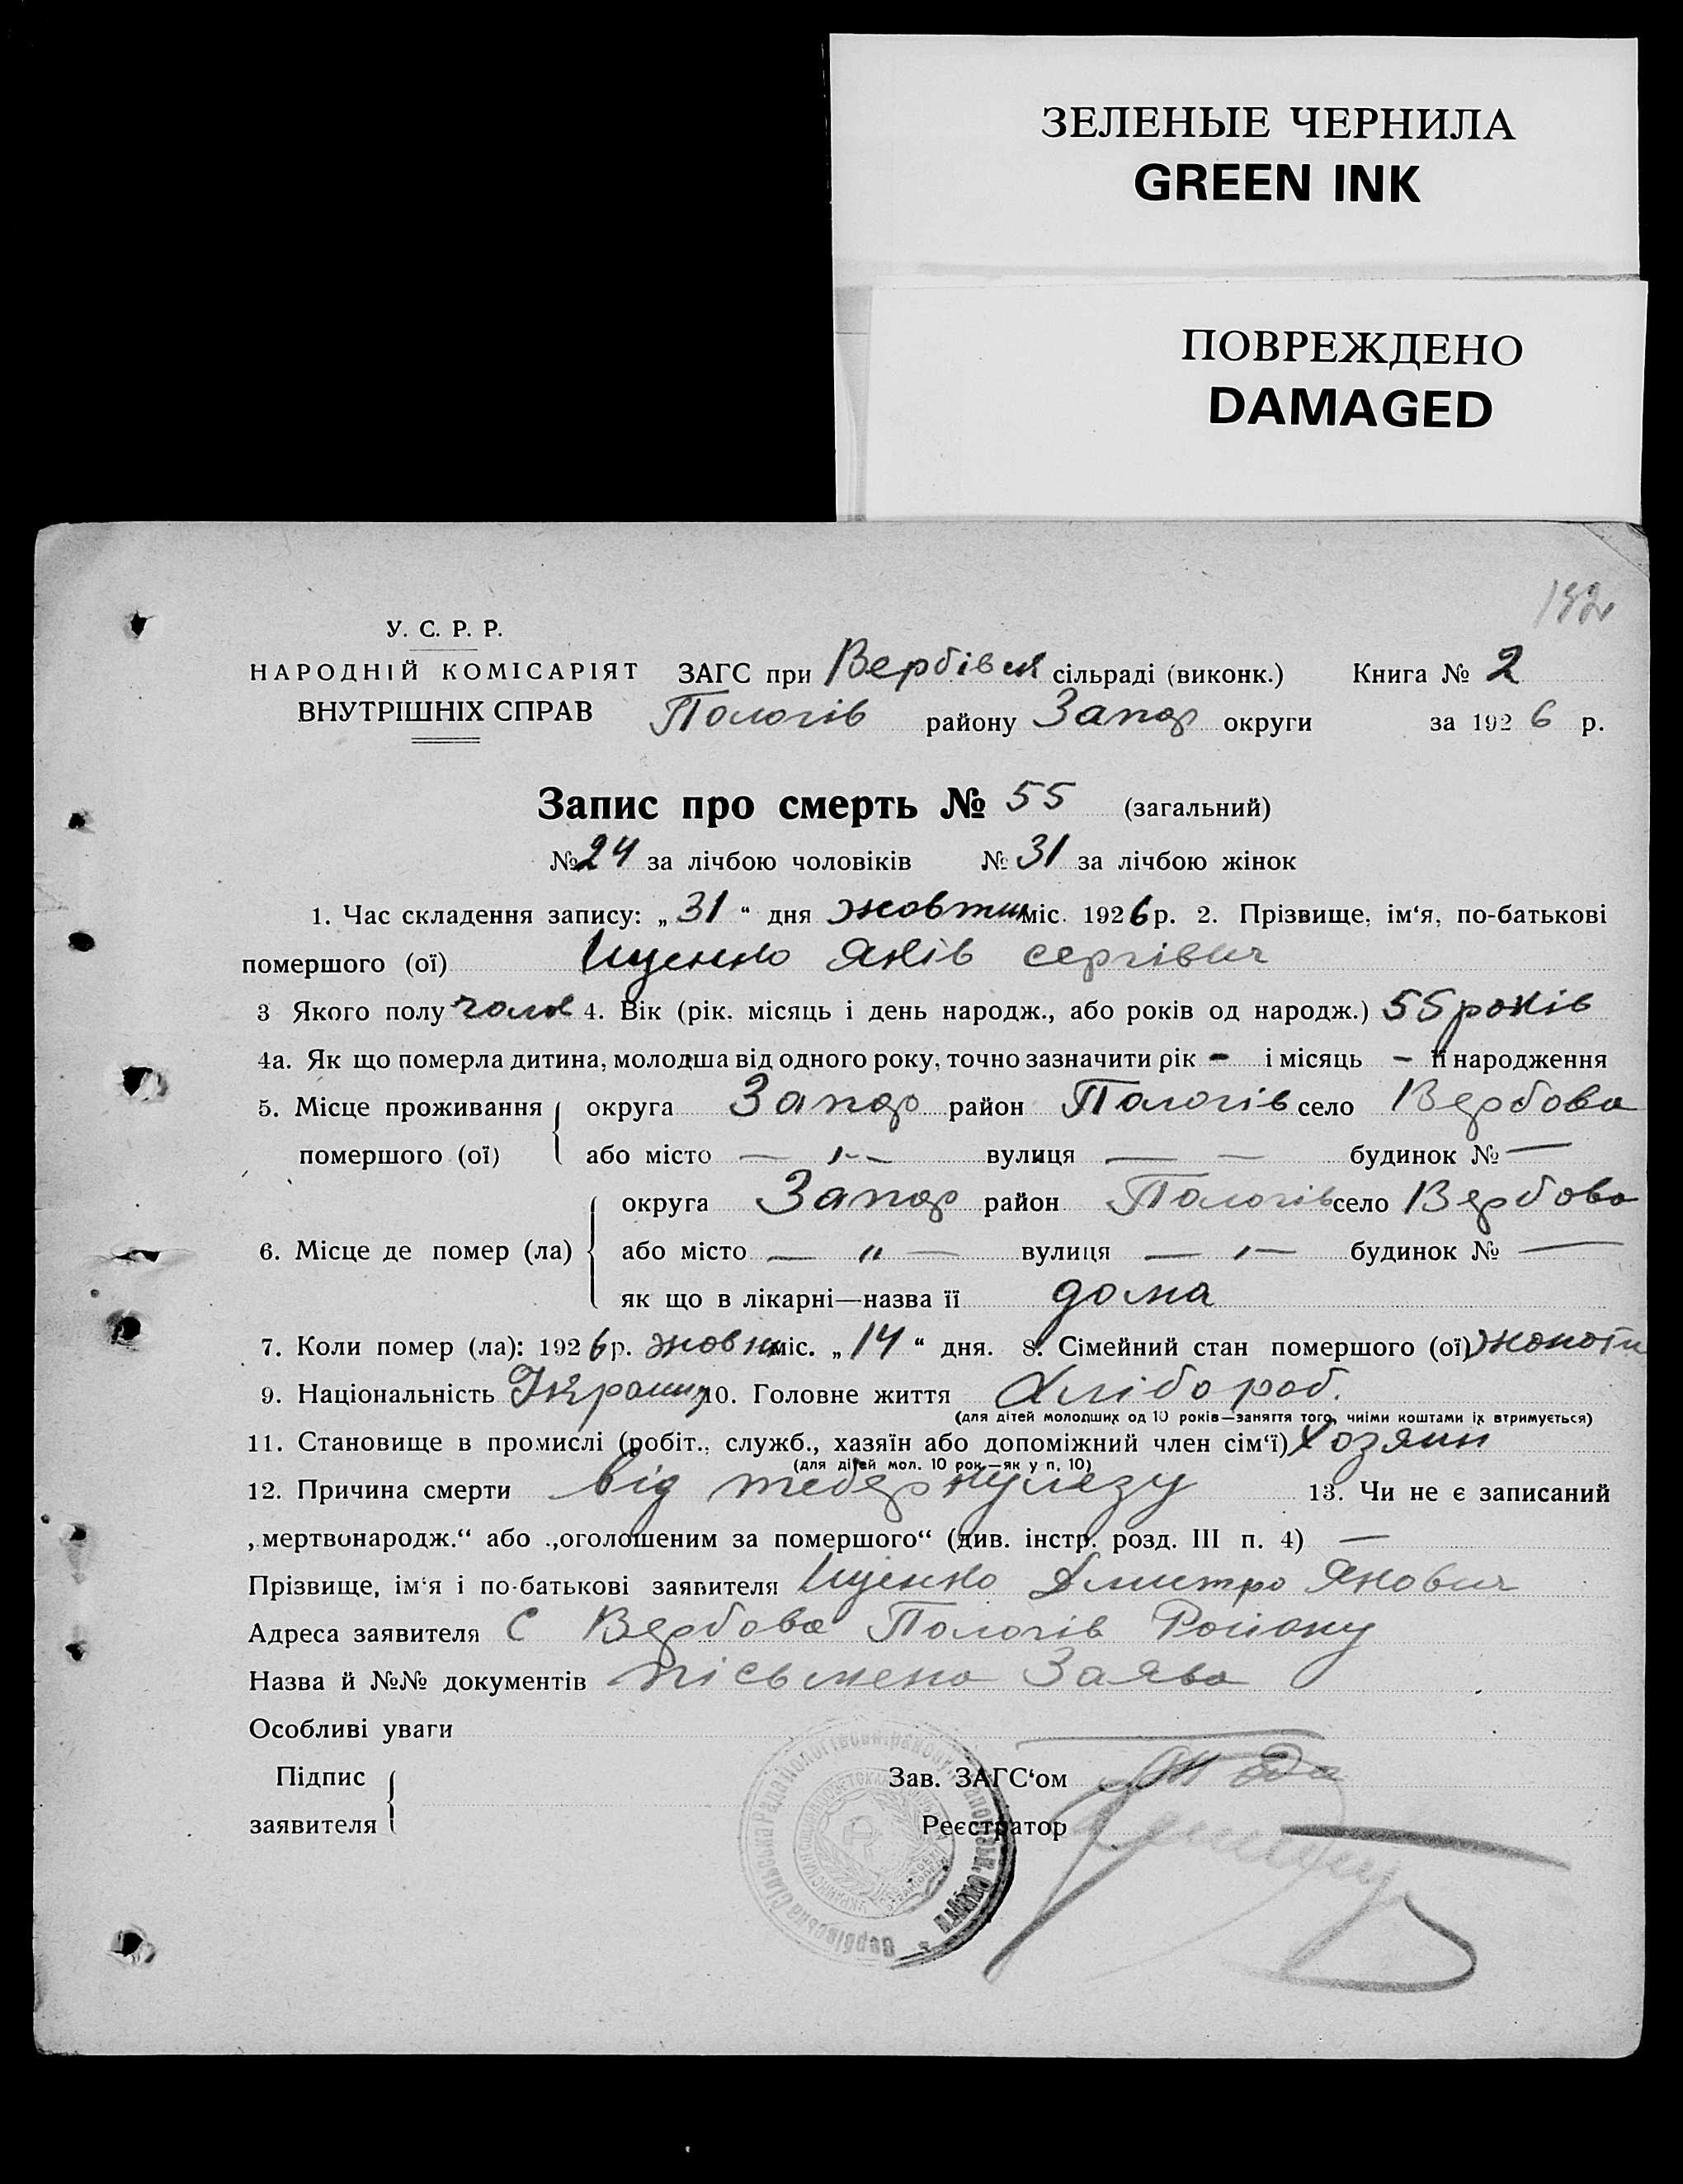 ЗЕЛЕНЫЕ ЧЕРНИЛА
GREEN INK
ПОВРЕЖДЕНО
DAMAGED
192
У. С. Р. Р.
НАРОДНІЙ КОМІСАРІЯТ ЗАГС при Вербівск сільраді (виконк.) Книга № 2
ВНУТРІШНІХ СПРАВ Пологів району Запор округи за 1926 р.
Запис про смерть № 55 (загальний)
№ 24 за лічбою чоловіків № 31 за лічбою жінок
1. Час складення запису: „31“ дня жовтня міс. 1926 р. 2. Прізвище, ім‘я, по-батькові
помершого (ої) Іщенко Яків Сергівич
3 Якого полу чолов 4. Вік (рік. місяць і день народж., або років од народж.) 55 років
4а. Як що померла дитина, молодша від одного року, точно зазначити рік - і місяць - її народження
5. Місце проживання округа Запор район Пологів село Вербова
помершого (ої) або місто — „ — вулиця — — будинок № —
округа Запор район Пологів село Вербова
6. Місце де помер (ла) або місто — „ — вулиця — „ — будинок № —
як що в лікарні—назва її дома
7. Коли помер (ла): 1926 р. жовтн міс. „14“ дня. 8. Сімейний стан помершого (ої) жоноти
9. Національність Україн 10. Головне життя Хлібороб.
(для дітей молодших од 10 років—заняття того, чиїми коштами їх втримується)
11. Становище в промислі (робіт., служб., хазяїн або допоміжний член сім‘ї) Хозяин
(для дітей мол. 10 рок.—як у п. 10)
12. Причина смерти від теберкулезу 13. Чи не є записаний
„мертвонародж.“ або „оголошеним за помершого“ (див. інстр. розд. III п. 4) —
Прізвище, ім‘я і по-батькові заявителя Іщенко Дмитро Якович
Адреса заявителя С Вербова Пологів Району
Назва й №№ документів пісьмена Заява
Особливі уваги
Підпис Зав. ЗАГС‘ом
заявителя Реєстратор